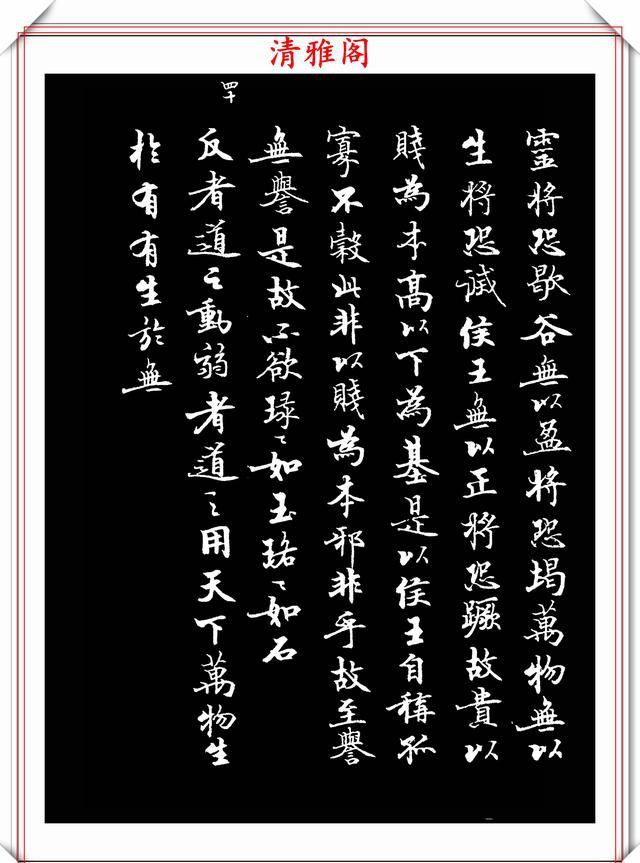 清雅阁
靈將恐歇谷無以盈將恐竭萬物無以
生將恐滅侯王無以正將恐蹶故貴以
賤為本高以下為基是以侯王自稱孤
寡不穀此非以賤為本邪非乎故至譽
無譽是故不欲琭〻如玉珞〻如石
四十
反者道之動弱者道之用天下萬物生
於有有生於無